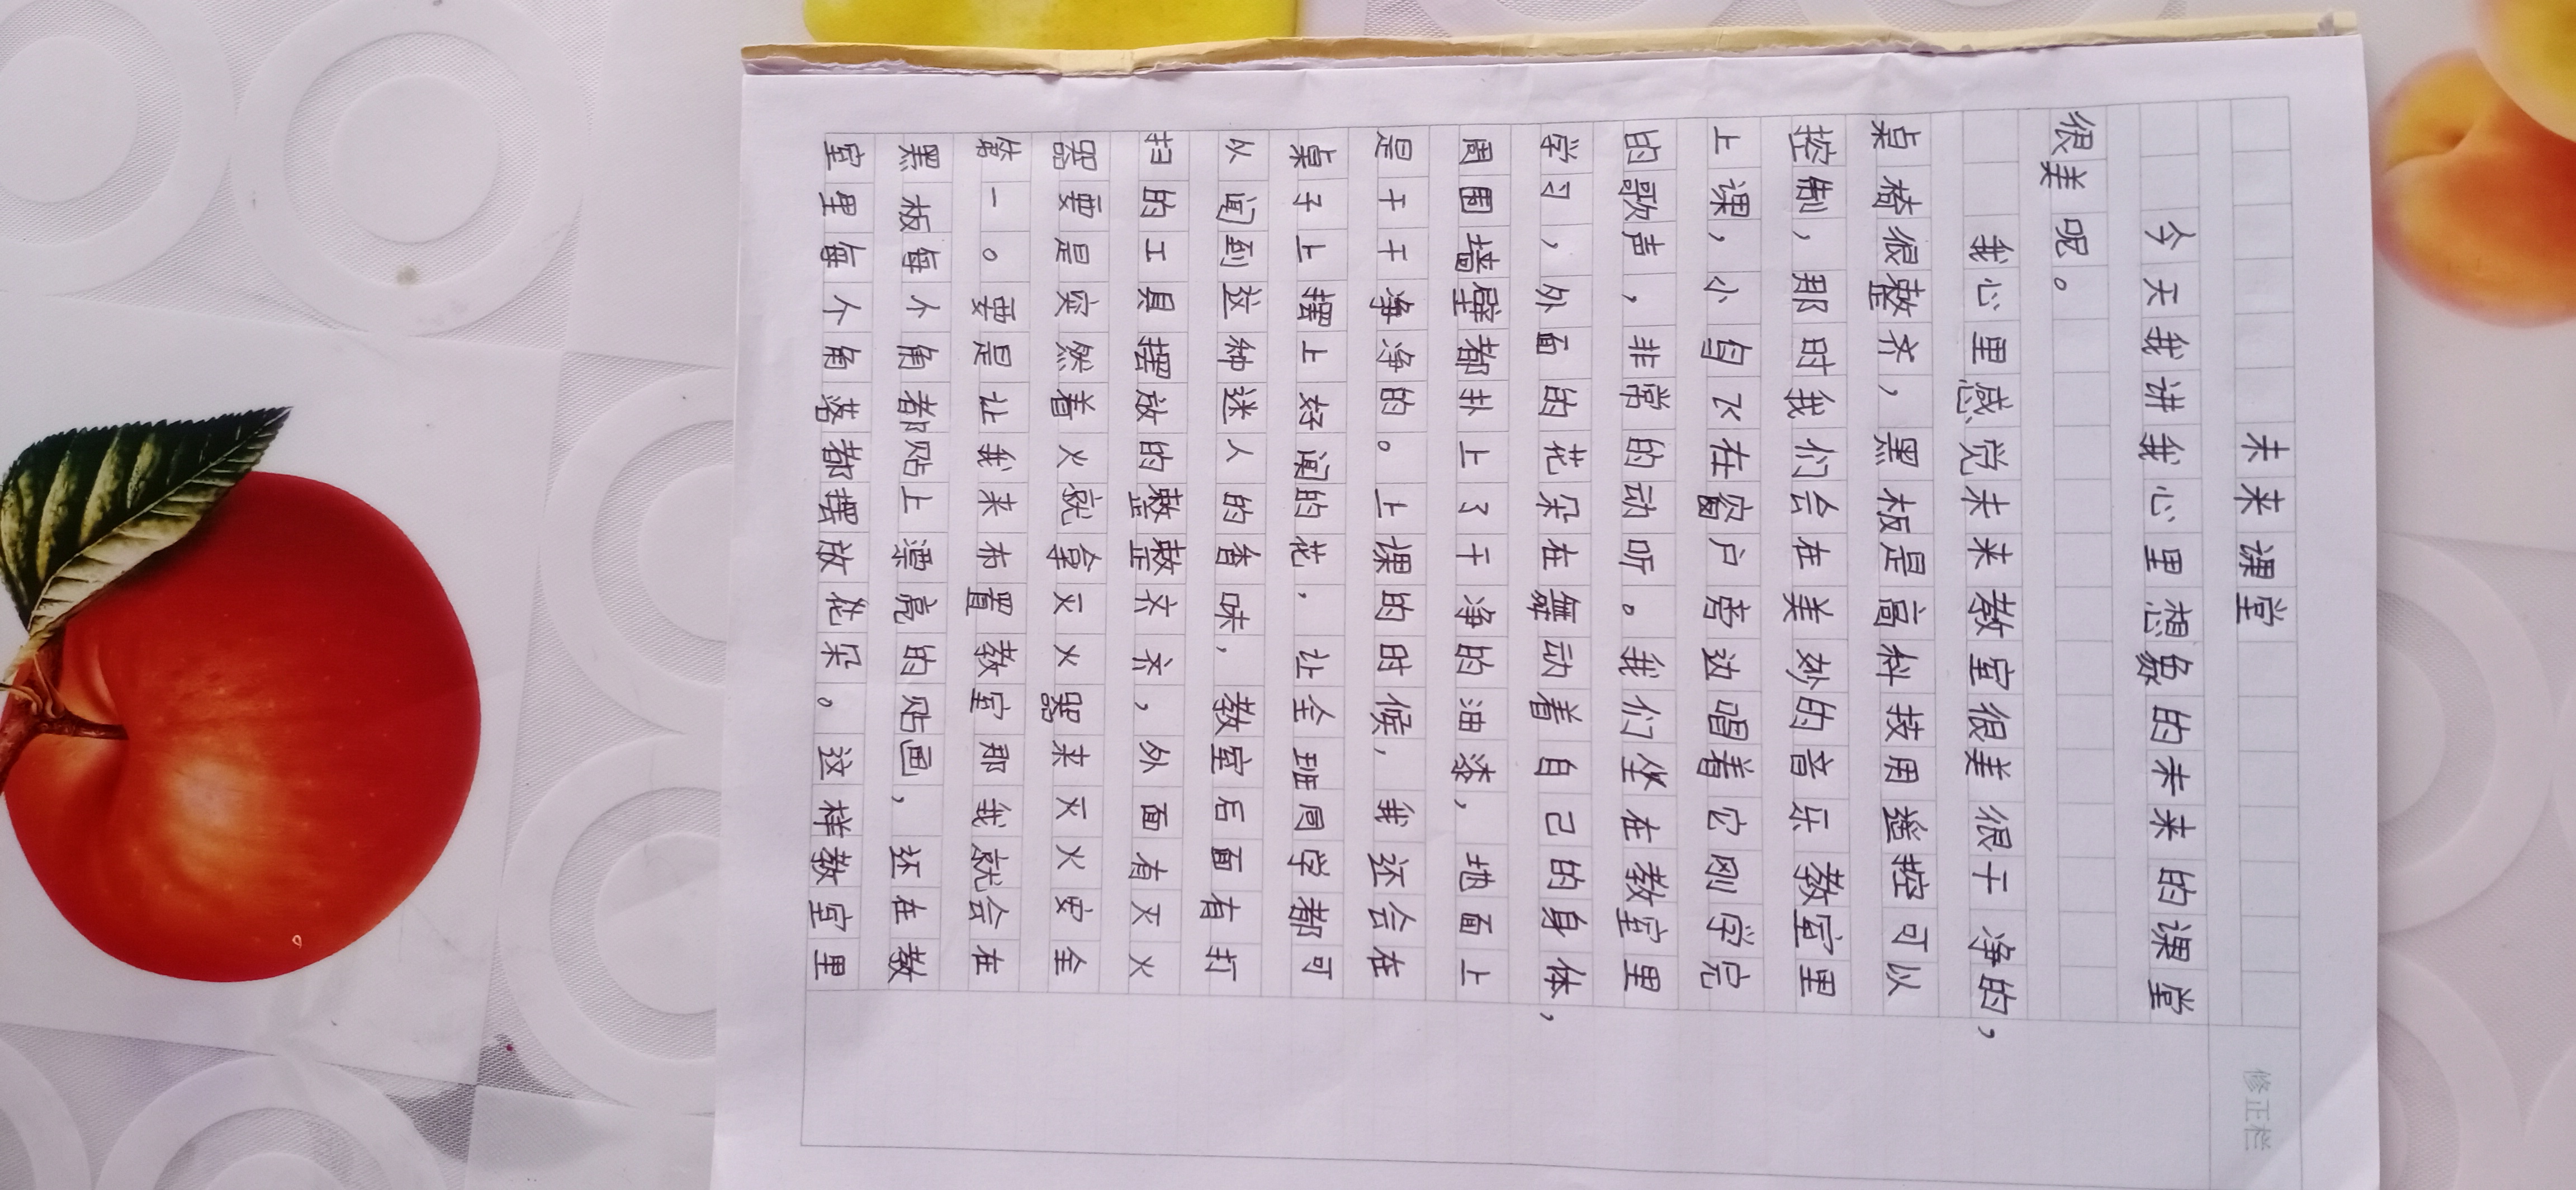 未来课堂
今天我讲我心里想象的未来的课堂
很美呢。
我心里感觉未来教室很美很干净的，
桌椅很整齐，黑板是高科技用遥控可以
控制，那时我们会在美妙的音乐教室里
上课，小鸟飞在窗户旁边唱着它刚学完
的歌声，非常的动听。我们坐在教室里
学习，外面的花朵在舞动着自己的身体，
周围墙壁都卦上了干净的油漆，地面上
是干干净净的。上课的时候，我还会在
桌子上摆上好闻的花，让全班同学都可
以闻到这种迷人的香味，教室后面有打
扫的工具摆放的整整齐齐，外面有灭火
器要是突然着火就拿灭火器来灭火安全
第一。要是让我来布置教室那我就会在
黑板每个角都贴上漂亮的贴画，还在教
室里每个角落都摆放花朵。这样教室里
修正栏